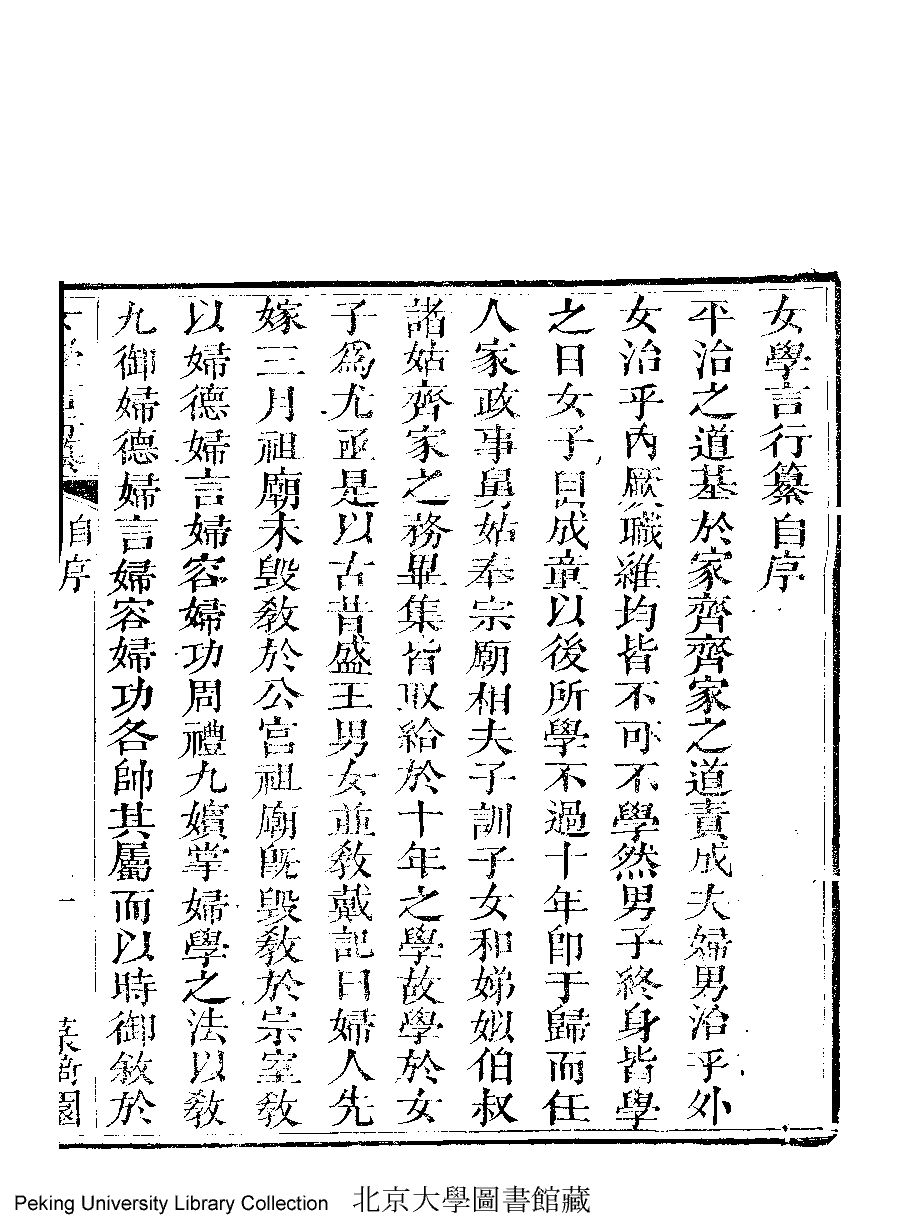 女學言行纂自序
平治之道基於家齊齊家之道責成夫婦男治乎外
女治乎內厥職維均皆不可不學然男子終身皆學
之日女子自成童以後所學不過十年即于歸而任
人家政事舅姑奉宗廟相夫子訓子女和娣姒伯叔
諸姑齊家之務畢集皆取給於十年之學故學於女
子爲尤亟是以古昔盛王男女並教戴記曰婦人先
嫁三月祖廟未毀教於公宮祖廟既毀教於宗室教
以婦德婦言婦容婦功周禮九嬪掌婦學之法以教
九御婦德婦言婦容婦功各帥其屬而以時御敘於
自序
一
Peking University Library Collection 北京大學圖書館藏